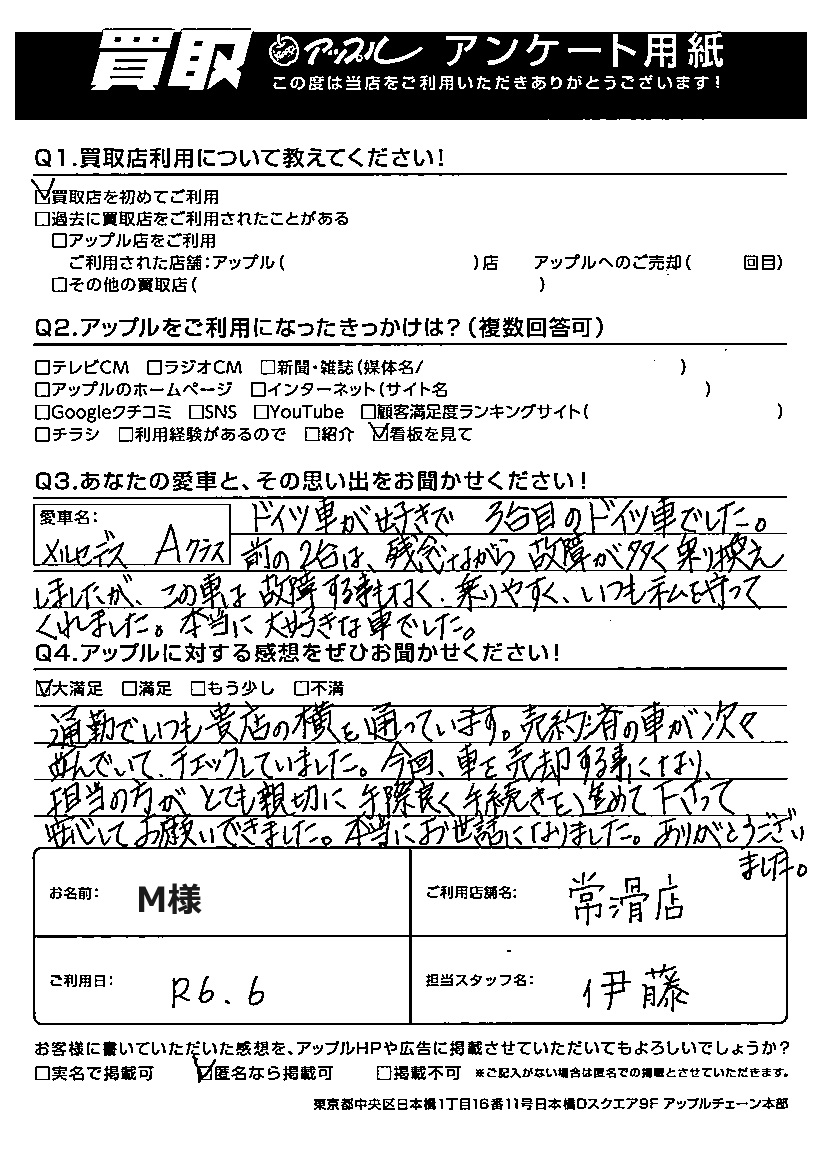 買取 アップル アンケート用紙
この度は当店をご利用いただきありがとうございます!
Q1.買取店利用について教えてください!
☑買取店を初めてご利用
□過去に買取店をご利用されたことがある
□アップル店をご利用
ご利用された店舗:アップル( )店 アップルへのご売却( 回目)
□その他の買取店( )
Q2.アップルをご利用になったきっかけは?(複数回答可)
□テレビCM □ラジオCM □新聞・雑誌(媒体名/ )
□アップルのホームページ □インターネット(サイト名 )
□Googleクチコミ □SNS □YouTube □顧客満足度ランキングサイト( )
□チラシ □利用経験があるので □紹介 ☑看板を見て
Q3.あなたの愛車と、その思い出をお聞かせください!
愛車名:
メルセデス Aクラス
ドイツ車が好きで 3台目のドイツ車でした。
前の2台は、残念ながら故障が多く乗り換え
しましたが、この車は故障する事もなく、乗りやすく、いつも私を守って
くれました。本当に大好きな車でした。
Q4.アップルに対する感想をぜひお聞かせください!
☑大満足 □満足 □もう少し □不満
通勤でいつも貴店の横を通っています。売約済の車が次々
並んでいて、チェックしていました。今回、車を売却する事になり、
担当の方がとても親切に手際良く手続きを進めて下さって
安心してお願いできました。本当にお世話になりました。ありがとうござい
ました。
お名前: M様
ご利用店舗名: 常滑店
ご利用日: R6.6
担当スタッフ名: 伊藤
お客様に書いていただいた感想を、アップルHPや広告に掲載させていただいてもよろしいでしょうか?
□実名で掲載可 ☑匿名なら掲載可 □掲載不可 ※ご記入がない場合は匿名での掲載とさせていただきます。
東京都中央区日本橋1丁目16番11号日本橋Dスクエア9F アップルチェーン本部